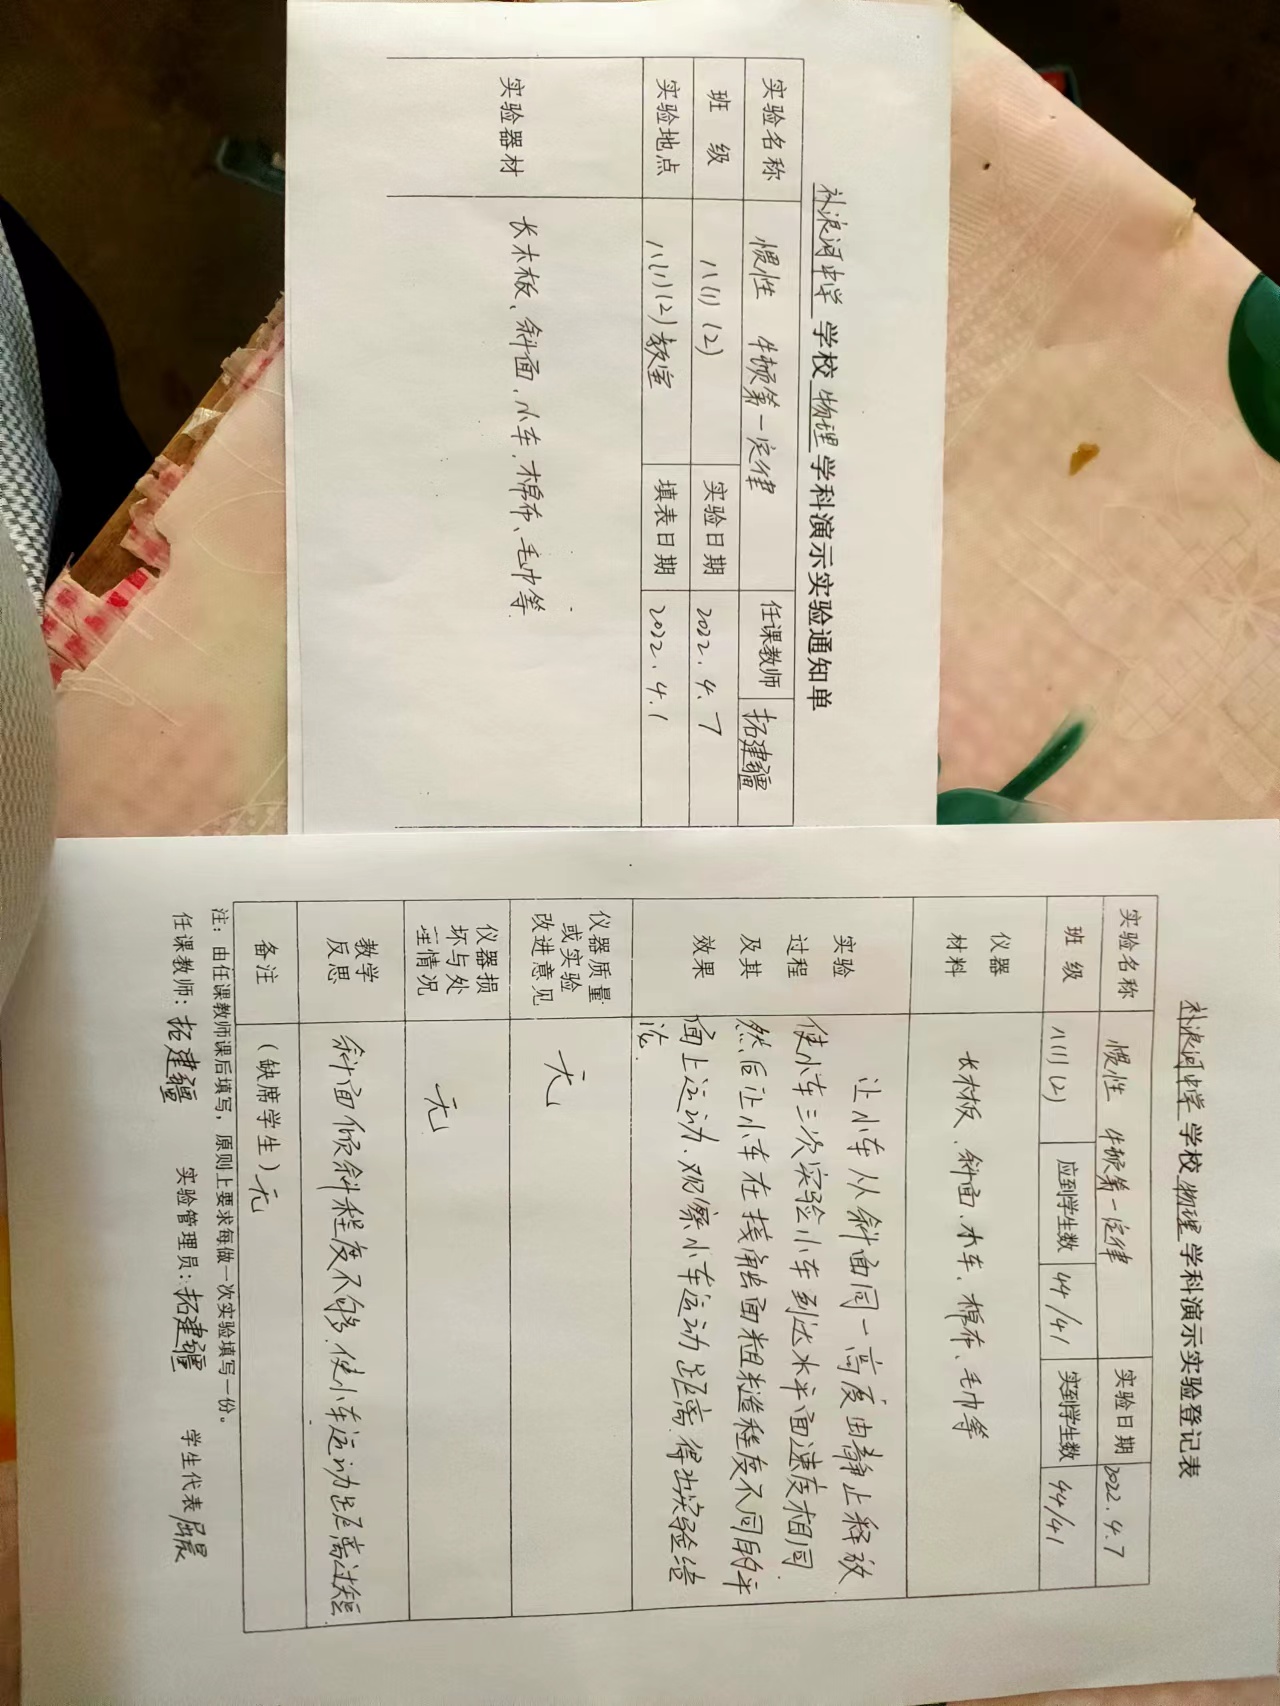 补浪河中学 学校 物理 学科演示实验通知单
实验名称 惯性 牛顿第一定律 任课教师 拓建疆
班 级 八(1)(2) 实验日期 2022.4.7
实验地点 八(1)(2)教室 填表日期 2022.4.1
实验器材 长木板、斜面、小车、棉布、毛巾等
补浪河中学 学校 物理 学科演示实验登记表
实验名称 惯性 牛顿第一定律 实验日期 2022.4.7
班 级 八(1)(2) 应到学生数 44/41 实到学生数 44/41
仪器
材料
长木板、斜面、木车、棉布、毛巾等
实验
过程
及其
效果
让小车从斜面同一高度由静止释放
使小车三次实验小车到达水平面速度相同.
然后让小车在接触面粗糙程度不同的平
面上运动.观察小车运动距离.得出实验结
论.
仪器质量
或实验
改进意见
无
仪器损
坏与处
理情况
无
教学
反思
斜面倾斜程度不够.使小车运动距离过短.
备注 (缺席学生)无
注：由任课教师课后填写，原则上要求每做一次实验填写一份。
任课教师：拓建疆 实验管理员：拓建疆 学生代表